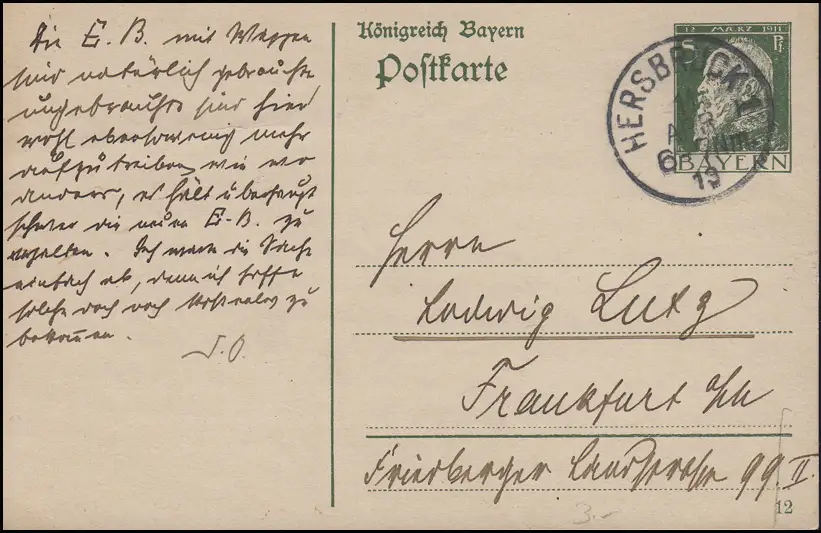 Die E. B. mit Wappen
sind natürlich gebrauchte,
ungebrauchte sind hier
wohl ebensowenig mehr
aufzutreiben, wie wo
anders, es hält überhaupt
schwer die neuen E.-B. zu
erhalten. Ich warte die Sache
einfach ab, denn ich hoffe
solche doch noch kostenlos zu
bekommen.
Königreich Bayern
Postkarte
12 MÄRZ 1911
5 Pf
BAYERN
HERSBRUCK
6
19
Herrn
Ludwig Lutz
Frankfurt a/M
Friedberger Landstrasse 99 II.
12
3.-